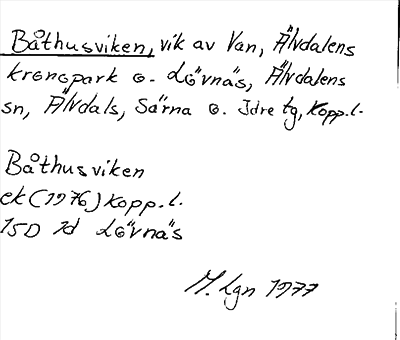 Båthusviken, vik av Van, Älvdalens
kronopark o. Lövnäs, Älvdalens
sn, Älvdals, Särna o. Idre tg, Kopp.l.
Båthusviken
ek (1976) Kopp.l.
15D 1d Lövnäs
M. Lgn 1977